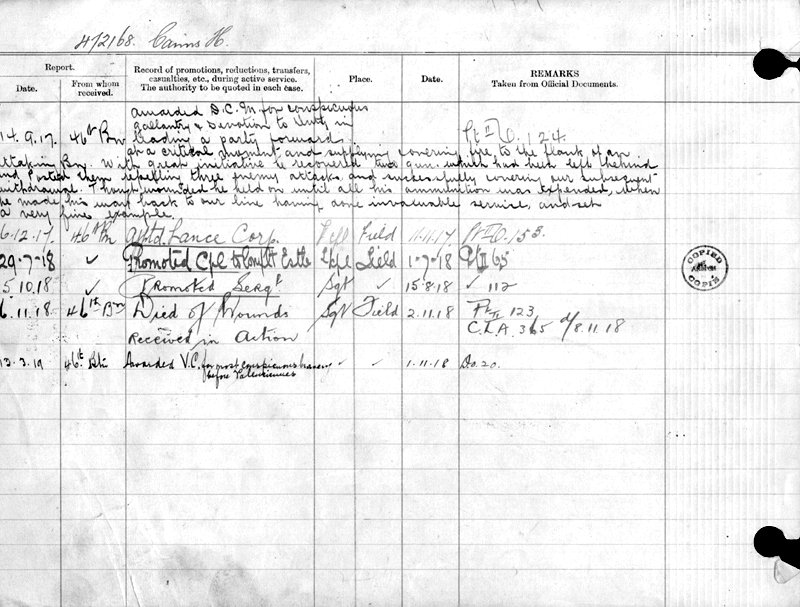 472168. Cairns H.
Report.
Record of promotions, reductions, transfers, casualties, etc., during active service. The authority to be quoted in each case.
Place.
Date.
REMARKS
Taken from Official Documents.
Date.
From whom received.
awarded D.C.M for conspicuous
gallantry & Devotion to Duty in
14.9.17. 46th Bn leading a party forward Pt II O. 124.
at a critical moment and supplying covering fire to the flank of an
attaking Bn. With great initiative he recovered two guns which had been left behind
and posted them repelling three enemy attacks and successfully covering our subsequent
withdrawal. Though wounded he held on until all his ammunition was expended, when
he made his way back to our line having done invaluable service, and set
a very fine example.
6.12.17. 46th Bn aptd. Lance Corp. Field 11.11.17. Pt II O. 153.
29-7-18 ✓ Promoted Cpl to Complt Estb Field 1-7-18 Pt II 65
5.10.18 ✓ Promoted Sergt Sgt ✓ 15.8.18 ✓ 112
6.11.18 46th Bn Died of Wounds Sgt Field 2.11.18 Pt II 123
Received in Action C.L.A. 365 d/8.11.18
13.3.19 46th Btn Awarded V.C. for most conspicuous bravery ✓ ✓ 1.11.18 Do. 20.
before Valenciennes
COPIED
COPIÉ